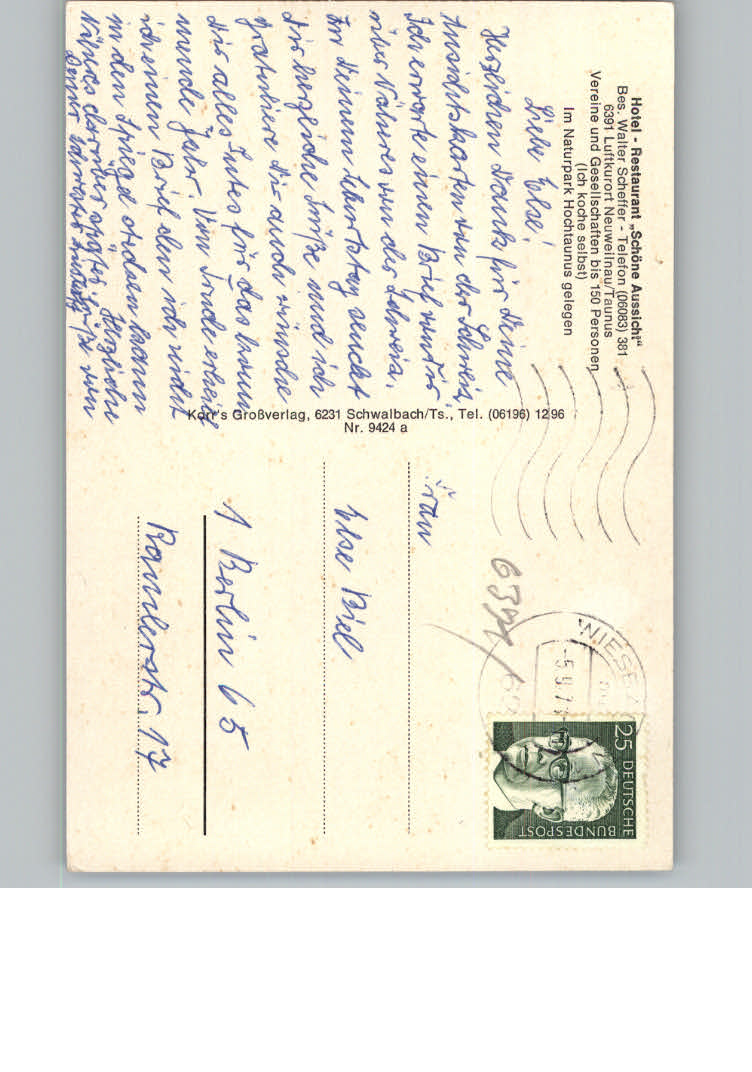 Hotel - Restaurant „Schöne Aussicht"
Bes. Walter Scheffer - Telefon (06083) 381
6391 Luftkurort Neuweilnau/Taunus
Vereine und Gesellschaften bis 150 Personen
(Ich koche selbst)
Im Naturpark Hochtaunus gelegen
Liebe Else!
Herzlichen Dank für Deine
Ansichtskarten von der Schweiz.
Ich erwarte einen Brief
über Näheres von der Schweiz.
Zu Deinem Geburtstag sendet
Dir herzliche Grüße und ich
gratuliere Dir auch wünsche
Dir alles Gutes für das kom
mende Jahr. Von Trude erhielt
ich einen Brief den ich nicht
in den Spiegel stecken kann
Näheres darüber später. Herzliche
Deiner Schwester Grüße von
Korr's Großverlag, 6231 Schwalbach/Ts., Tel. (06196) 1296
Nr. 9424 a
Frau
Else Biel
1 Berlin 65
Ramlerstr. 17
WIESBA
-5.9.7
25 DEUTSCHE
BUNDESPOST